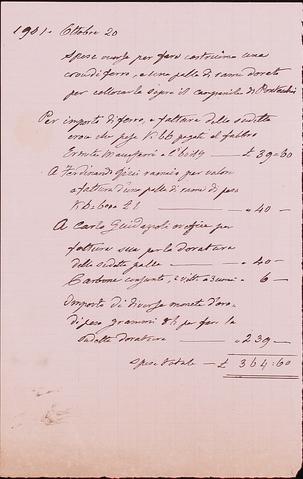 1901. Ottobre 20
Spese occorse per fare costruire una
croce di ferro, e una palla di rame dorata
per collocarla sopra il campanile di
Per importo di ferro, e fattura della sudetta
croce che pesa K. 66 pagate al fabbro
Ermete £ 39=60
A Ferdinando ramaio per valore
e fattura d'una palla di rame di peso
K 6 " 40 -
A Carlo orefice per
fattura sua per la doratura
della sudetta palla " 40 -
Carbone consumato, e " 6 -
Importo di diverse monete d'oro
di peso grammi 84 per fare la
sudetta doratura " 239 -
Spesa totale - £ 364:60